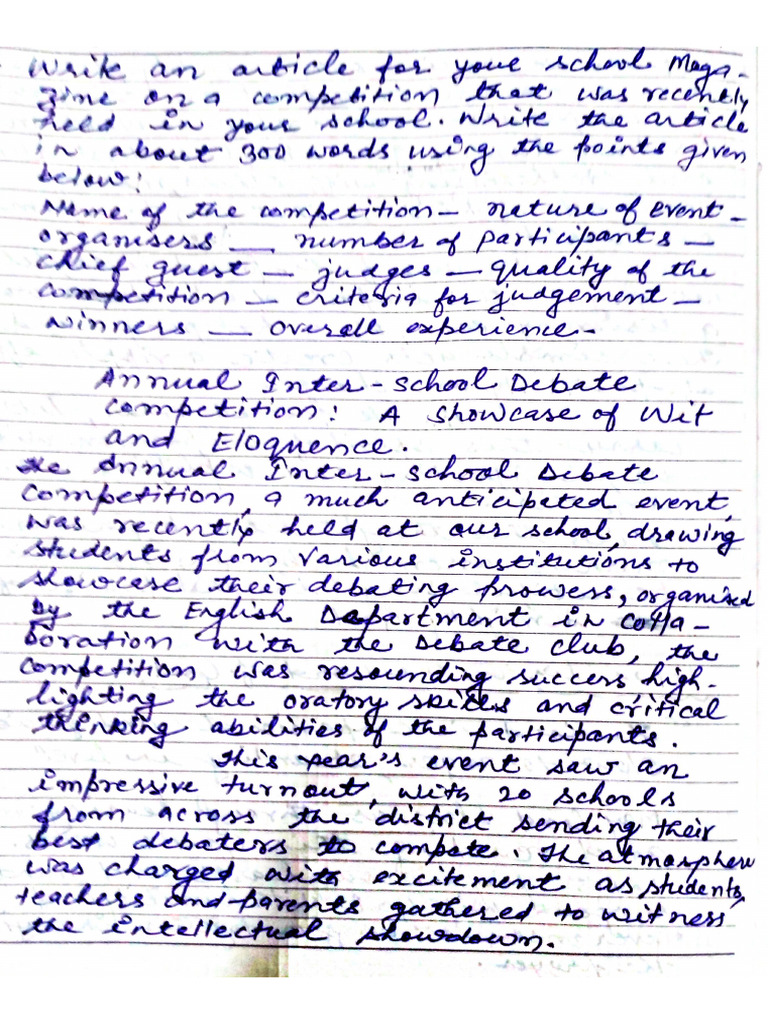 Write an article for your school Maga-
zine on a competition that was recently
held in your school. Write the article
in about 300 words using the points given
below:
Name of the competition - nature of event -
organisers - number of participants -
chief guest - judges - quality of the
competition - criteria for judgement -
winners - overall experience. -
Annual Inter-school Debate
Competition: A showcase of Wit
and Eloquence.
The Annual Inter-school Debate
Competition, a much anticipated event,
was recently held at our school, drawing
students from various institutions to
showcase their debating prowess, organised
by the English Department in colla-
boration with the Debate club, the
competition was resounding success high-
lighting the oratory skills and critical
thinking abilities of the participants.
This year's event saw an
impressive turnout, with 20 schools
from across the district sending their
best debaters to compete. The atmosphere
was charged with excitement as students,
teachers and parents gathered to witness
the intellectual showdown.